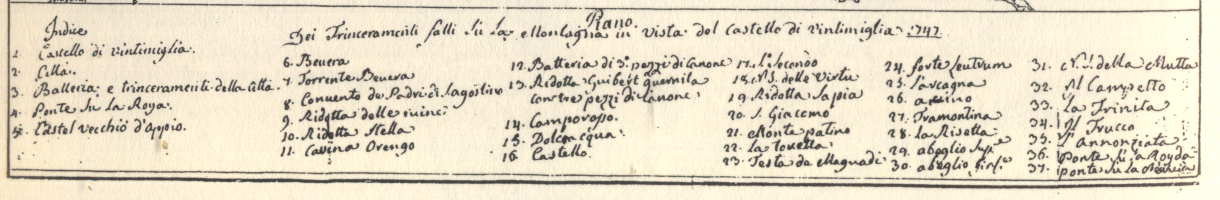 Piano.
Indice
Dei Trinceramenti fatti Sù La Montagna in vista del Castello di Vintimiglia 1747
1. Castello di Vintimiglia.
2. Città.
3. Batteria e trinceramenti della Città.
4. Ponte Su La Roya.
5. Castel vecchio d'Appio.
6. Bevera
7. Torrente Bevera
8. Convento de Padri di Sagostino
9. Ridotta delle
10. Ridotta Stella
11. Cavina Orengo
12. Batteria di 3. pezzi di Canone
13. Ridotta Guibert
con tre pezzi di Canone
14. Camporosso.
15. Dolceacqua.
16. Castello.
17. S. Secondo
18. N.S. delle Virtu
19. Ridotta Sapia
20. S. Giacomo
21. Monte patino
22. La
23. Testa de Magnadi
24. forte
25. Sarcagna
26.
27. Tramontina
28. La
29. abeglio Sup.e
30. abeglio Inf.e
31. N.S. della Mutta
32. Il Campetto
33. La Trinita
34. Il Trucco
35. L'annonziata
36. Ponte Su La Royda
37. ponte Su La